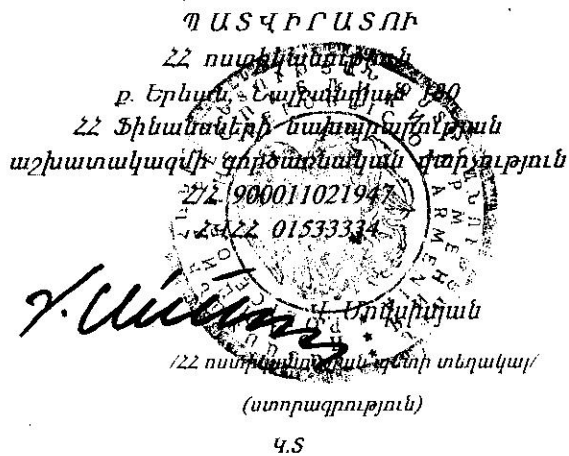 ՊԱՏՎԻՐԱՏՈՒ
ՀՀ ոստիկանություն
ք. Երևան, Նալբանդյան 130
ՀՀ Ֆինանսների նախարարության
աշխատակազմի գործառնական վարչություն
Հ/Հ 900011021947
ՀՎՀՀ 01533334
/ՀՀ ոստիկանության պետի տեղակալ/
(ստորագրություն)
Կ.Տ